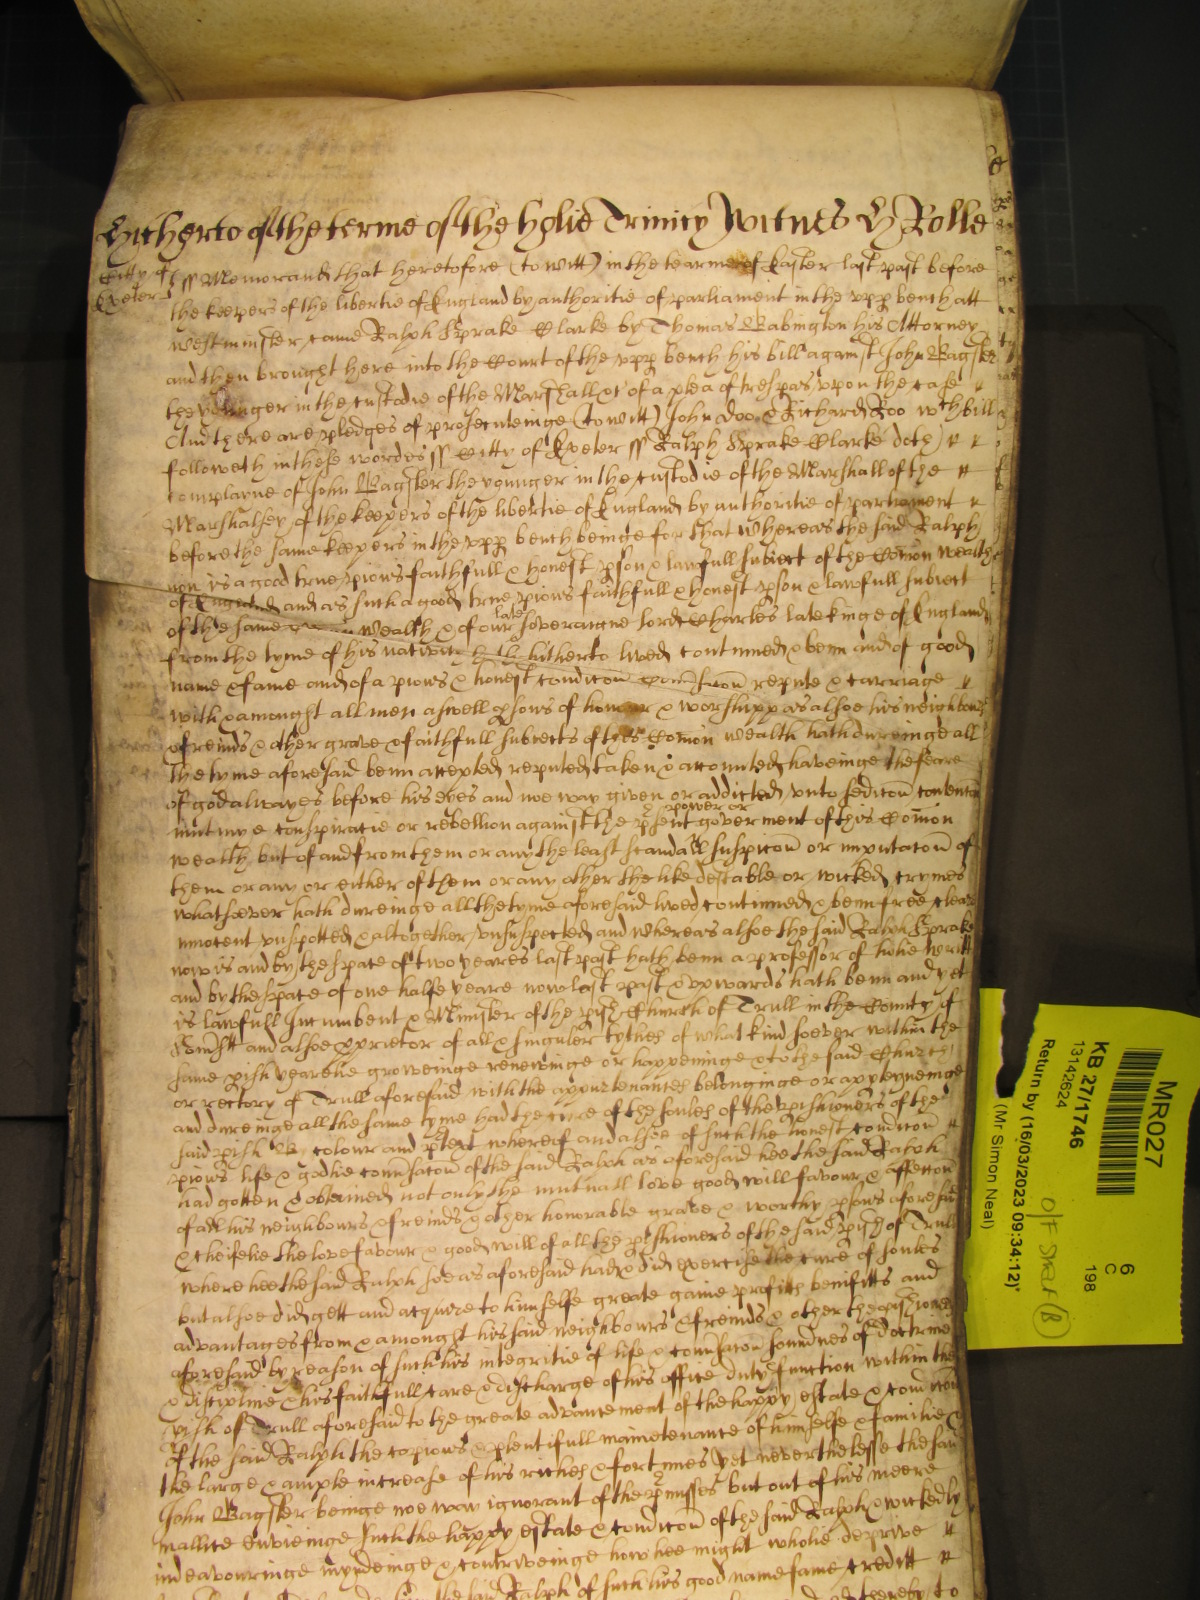 Hitherto of the terme of the holie Trinity Witnes H Rolle
Citty of Exeter ss Memorand that heretofore (to witt) in the tearme of Easter last past before
the keepers of the libertie of England by authoritie of parliament in the upp bench att
westminster, came Ralph Sprake Clarke by Thomas Babington his Attorney
and then brought here into the Court of the upp bench his bill against John Bagster
the younger in the custodie of the Marshall &c of a plea of trespas upon the case
And there are pledges of prosecuteinge (to witt) John Doo & Richard Roo wch bill
followeth in these wordes ss Citty of Exeter ss Ralph Sprake Clarke doth
complayne of John Bagster the younger in the custodie of the Marshall of the
Marshalsey of the keepers of the libertie of England by authoritie of parliament
before the same keepers in the upp bench beinge for that Whereas the said Ralph
now is a good true pious faithfull & honest pson & lawfull subiect of the Comon wealth
of England and as such a good true pious faithfull & honest pson & lawfull subiect
of the same wealth & of our late soveraigne lord Charles late kinge of England
from the tyme of his nativity hitherto lived continued & benn and of good
name & fame and of a pious & honest condicon repute & carriage
with & amongst all men aswell psons of honour & worshipp as alsoe his neighbours
& freinds & other grave & faithfull subiects of this Comon wealth hath dureinge all
the tyme aforesaid benn accepted reputed taken & accounted haveinge the feare
of god alwayes before his eyes and noe way given or addicted unto sedicon
mutinye conspiracie or rebellion against the psent power or goverment of this Comon
wealth but of and from them or any the least scandall suspicon or imputacon of
them or any or either of them or any other the like destable or wicked crymes
whatsoever hath dureinge all the tyme aforesaid lived continued & benn free cleare
innocent unspotted & altogether unsuspected and whereas alsoe the said Ralph Sprake
now is and by the space of two yeares last past hath benn a professor of holie writt
and by the space of one halfe yeare now last past & upwards hath benn and yet
is lawfull Incumbent & Minister of the pish Church of Trull in the County of
Somstt and alsoe pprietor of all & singuler tythes of what kind soever within the
same pish yearelie groweinge renewinge or happeninge & to the said Church
or rectory of Trull aforesaid with the appurtenances belonginge or apperteyneinge
and dureinge all the same tyme had the cure of the soules of the pishioners of the
said pish By colour and ptext whereof and alsoe of such the honest condicon
pious life & godlie convsacon of the said Ralph as aforesaid hee the said Ralph
had gotten & obteined not only the mutuall love good will favour & affeccon
of all his neighbours & freinds & other honorable grave & worthy psons aforesaid
& cheifelie the love favour & good will of all the pishioners of the said pish of Trull
where hee the said Ralph soe as aforesaid had & did exercise the cure of soules
but alsoe did gett and acquire to himselfe greate gaine profitts benifitts and
advantages from & amongst his said neighbours & freinds & other the pishioners
aforesaid by reason of such his integritie of life & convsacon soundnes of doctrine
& discipline & his faithfull care & discharge of his office duty & function within the
pish of Trull aforesaid to the greate advancement of the happy estate & condicon
of the said Ralph the copious & plentifull maintenance of himselfe & familie &
the large & ample increase of his riches & fortunes yet neverthelesse the said
John Bagster beinge noe way ignorant of the pmisses but out of his meere
mallice envieinge such the happy estate & condicon of the said Ralph & wickedly
indeavouringe myndeinge & contriveinge how hee might wholie deprive
the said Ralph of such his good name fame creditt
MR027
6
C
198
KB 27/1746
13142624
Return by (16/03/2023 09:34:12)'
(Mr Simon Neal)